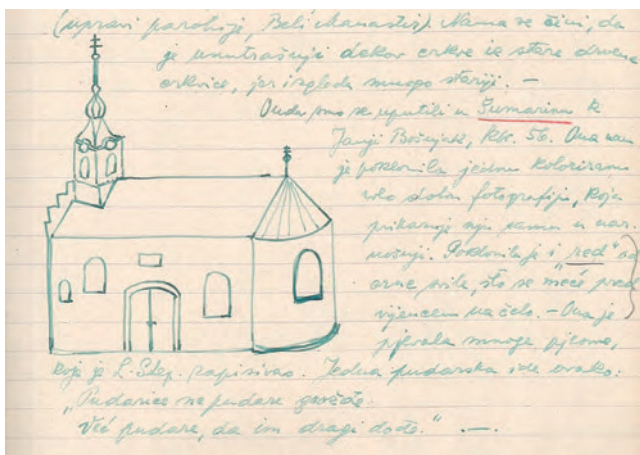 (upravi parohije, Beli Manastir). Nama se čini, da
je unutrašnji dekor crkve iz stare drvene
crkvice, jer izgleda mnogo stariji. —
Onda smo se uputili u Šumarinu k
Janji Bošnjak, kbr. 56. Ona nam
je poklonila jednu koloriranu
vrlo fotografiju, koja
prikazuje nju samu u nar.
nošnji. Poklonila je i "red" od
crne svile, što se meće pred
vijencem na čelo. — Ona je
pjevala mnoge pjesme,
koje je L. Step. zapisivao. Jedna pudarska ide ovako:
„Pudarice na pudare
Već pudare, da im dragi dođe." —.—